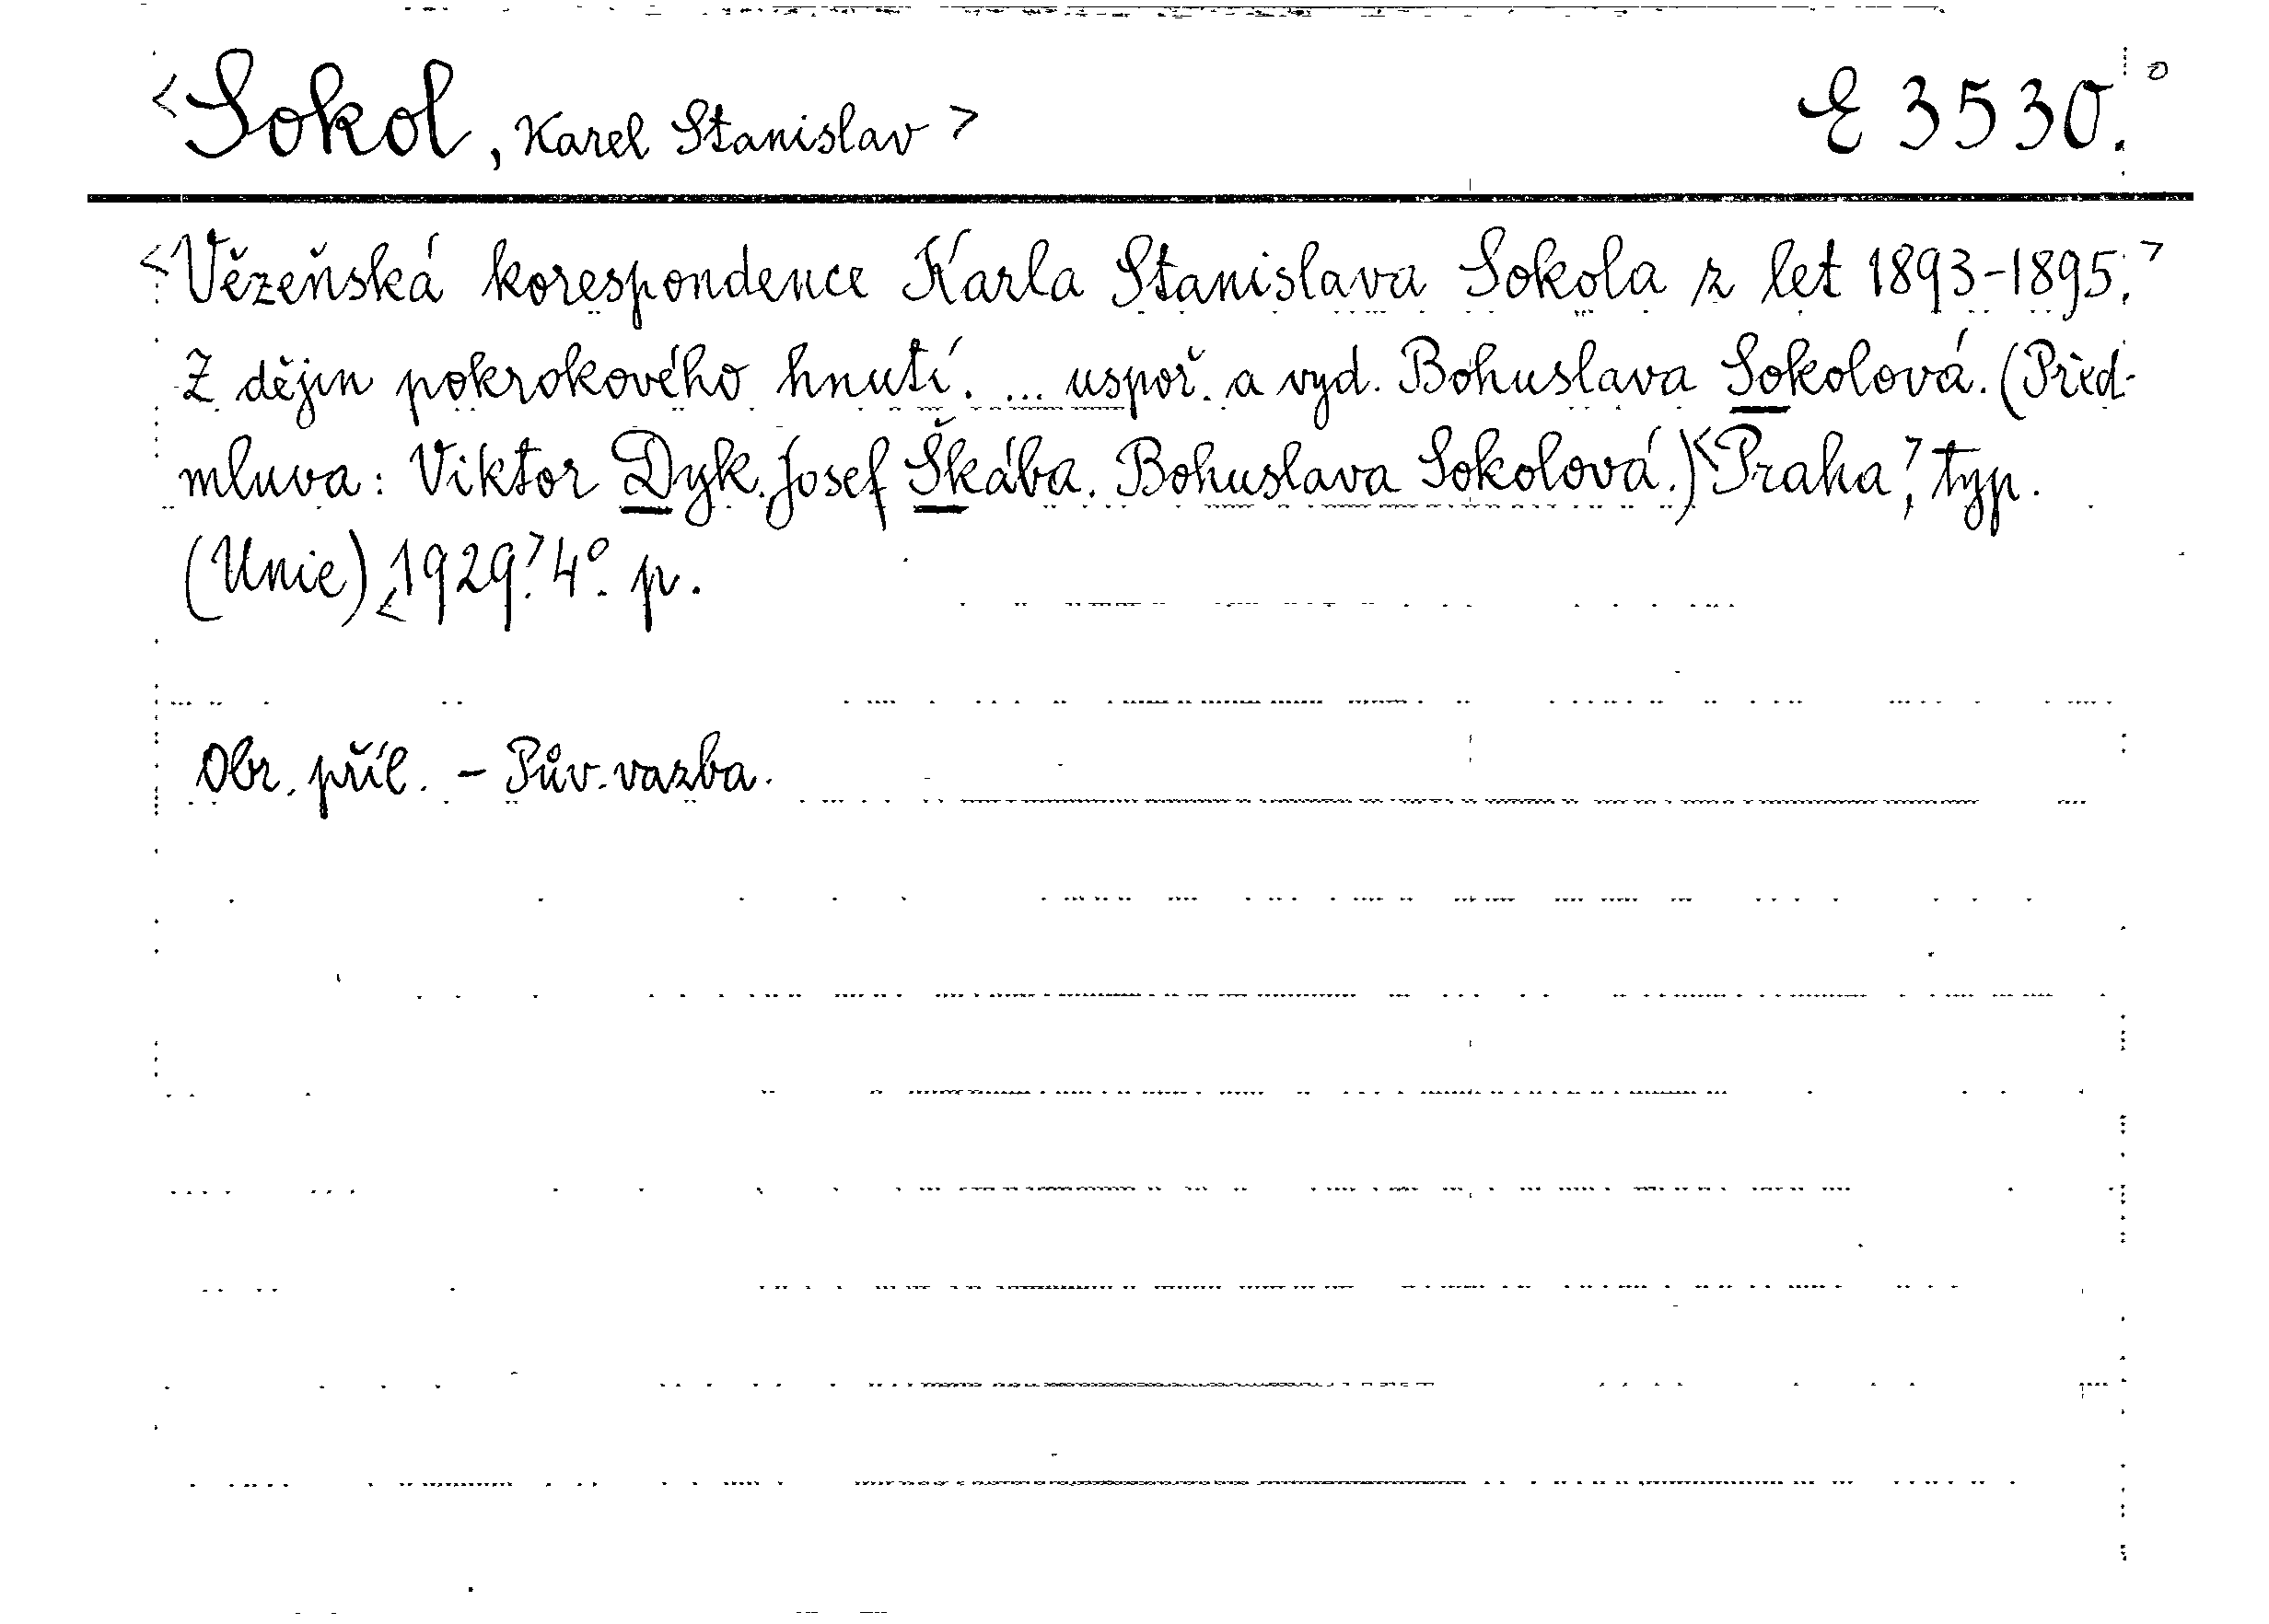 <Sokol, Karel Stanislav> E 3530.
<Vězeňská korespondence Karla Stanislava Sokola z let 1893-1895.>
Z dějin pokrokového hnutí. ... uspoř. a vyd. Bohuslava Sokolová. (Před-
mluva: Viktor Dyk. Josef Škába. Bohuslava Sokolová.) <Praha>, typ.
(Unie), <1929>. 4°. p.
Obr. příl. - Pův. vazba.